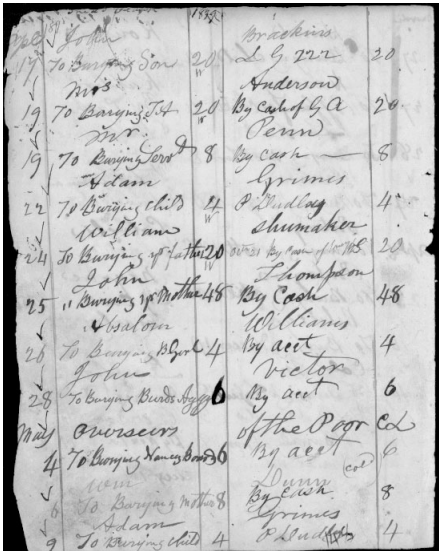 John Brackins
17 To Burying Son 20 L G 222 20
Mrs Anderson
19 To Burying J A 20 By Cash of G A 20
Mr. Penn
19 To Burying Servd 8 By cash — 8
Adam Grimes
22 To Burying child 4 P Dudlay 4
William Shumaker
24 To Burying yr father 20 By Cash of W S. 20
John Thompson
25 " Burying yr Mother 48 By Cash 48
Absalom Williams
26 To Burying B Girl 4 By acct 4
John Victor
28 To Burying Burds 6 By acct 6
May Overseers of the Poor Cd
4 To Burying Nancy Bonds 6 By acct 6
Wm Dunn (cod)
6 To Burying Mother 8 By Cash 8
Adam Grimes
9 To Burying child 4 P Dudlay 4